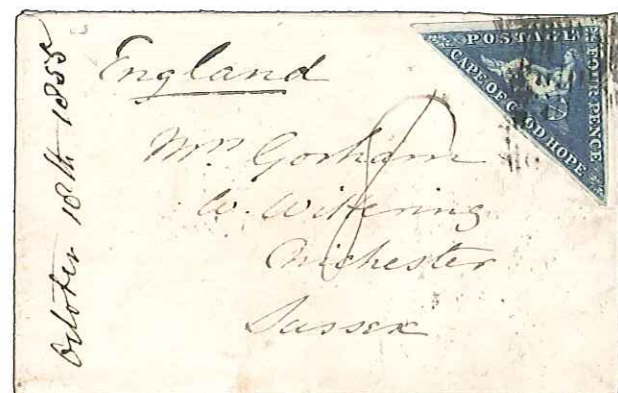 October 18th 1855
England
POSTAGE
FOUR PENCE
CAPE OF GOOD HOPE
Mrs Gorham
W. Wittering
Chichester
Sussex